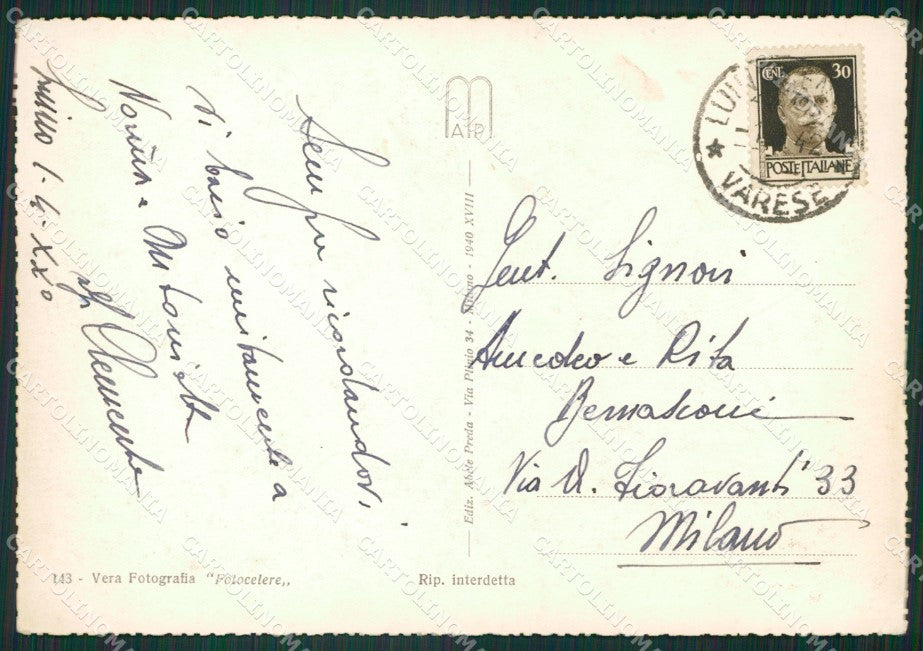 Luino 1.4.XX°
Sempre ricordandovi
vi bacio unitamente a
Norina e Antonietta
Clemente
MAP
Ediz. Abele Preda - Via Plinio 34 - Milano - 1940 XVIII
CENT. 30
POSTE ITALIANE
LUINO
42
★ VARESE
Gent. Signori
Amedeo e Rita
Bernasconi
Via A. Fioravanti 33
Milano
143 - Vera Fotografia "Fotocelere„
Rip. interdetta
CARTOLINOMANIA